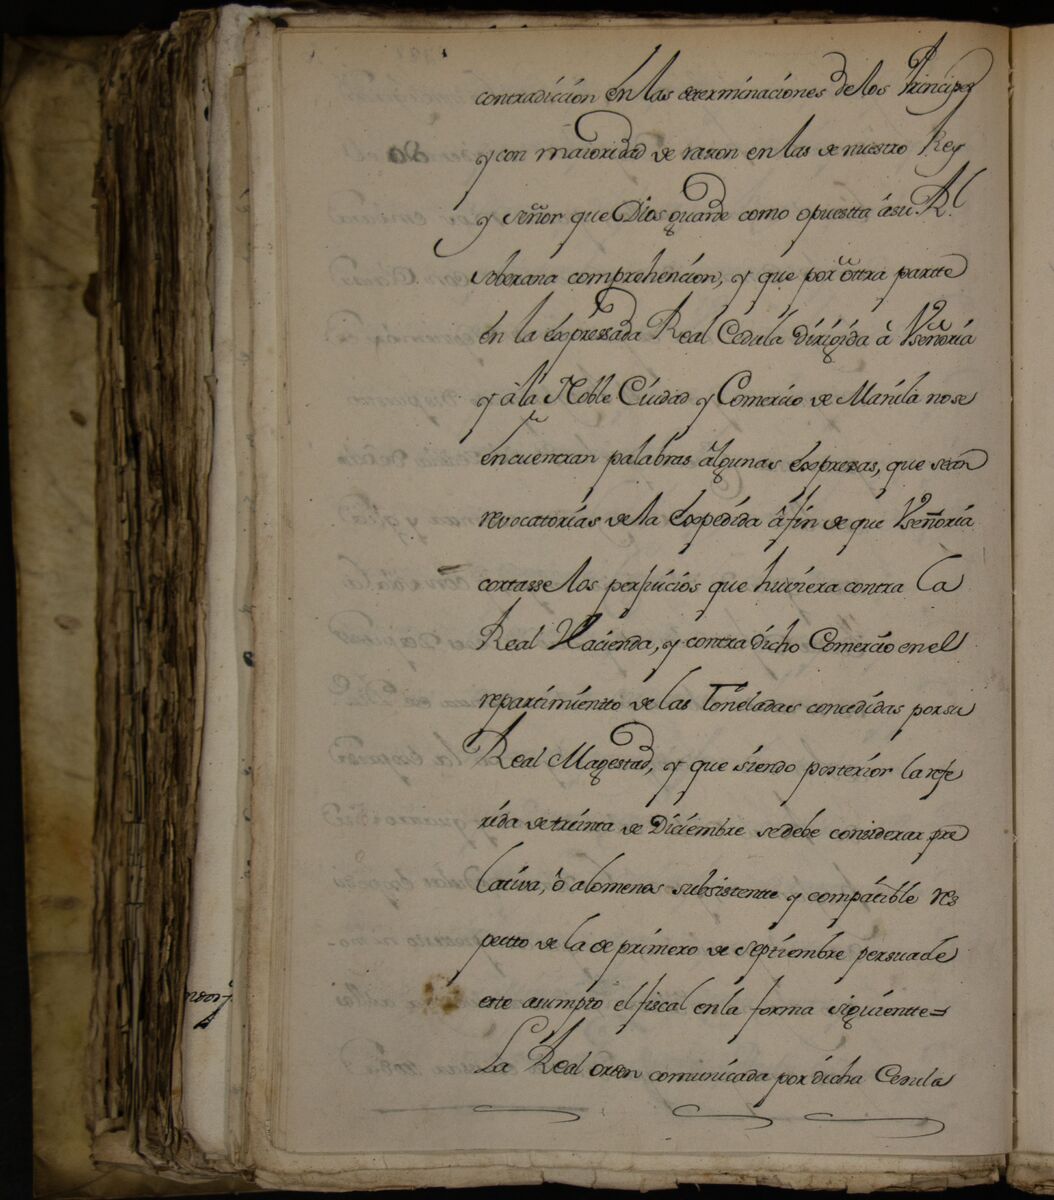 contradiccion en las determinaciones de los Principes
y con maioridad de razon en las de nuestro Rey
y señor que Dios guarde como opuestta ásu Rl.
soberana comprehencion, y que por ôttra partte
en la expressada Real Cedula dirigida â Vseñoria
y âla Noble Ciudad y Comercio de Manila nose
encuentran palabras âlgunas expresas, que sean
revocatorias de la Expedida âfin de que Vseñoria
cortasse los perjuicios que huviera contra la
Real Hacienda, y contra dicho Comercio en el
repartimientto de las Toneladas concedidas por su
Real Magestad, y que siendo posterior la refe
rida de treinta de Diciembre se debe considerar pre
lativa, ô alomenos subsistente y compatible res
pectto de la de primero de septiembre persuade
este asumpto el fiscal en la forma siguientte=
La Real orden comunicada por dicha Cedula